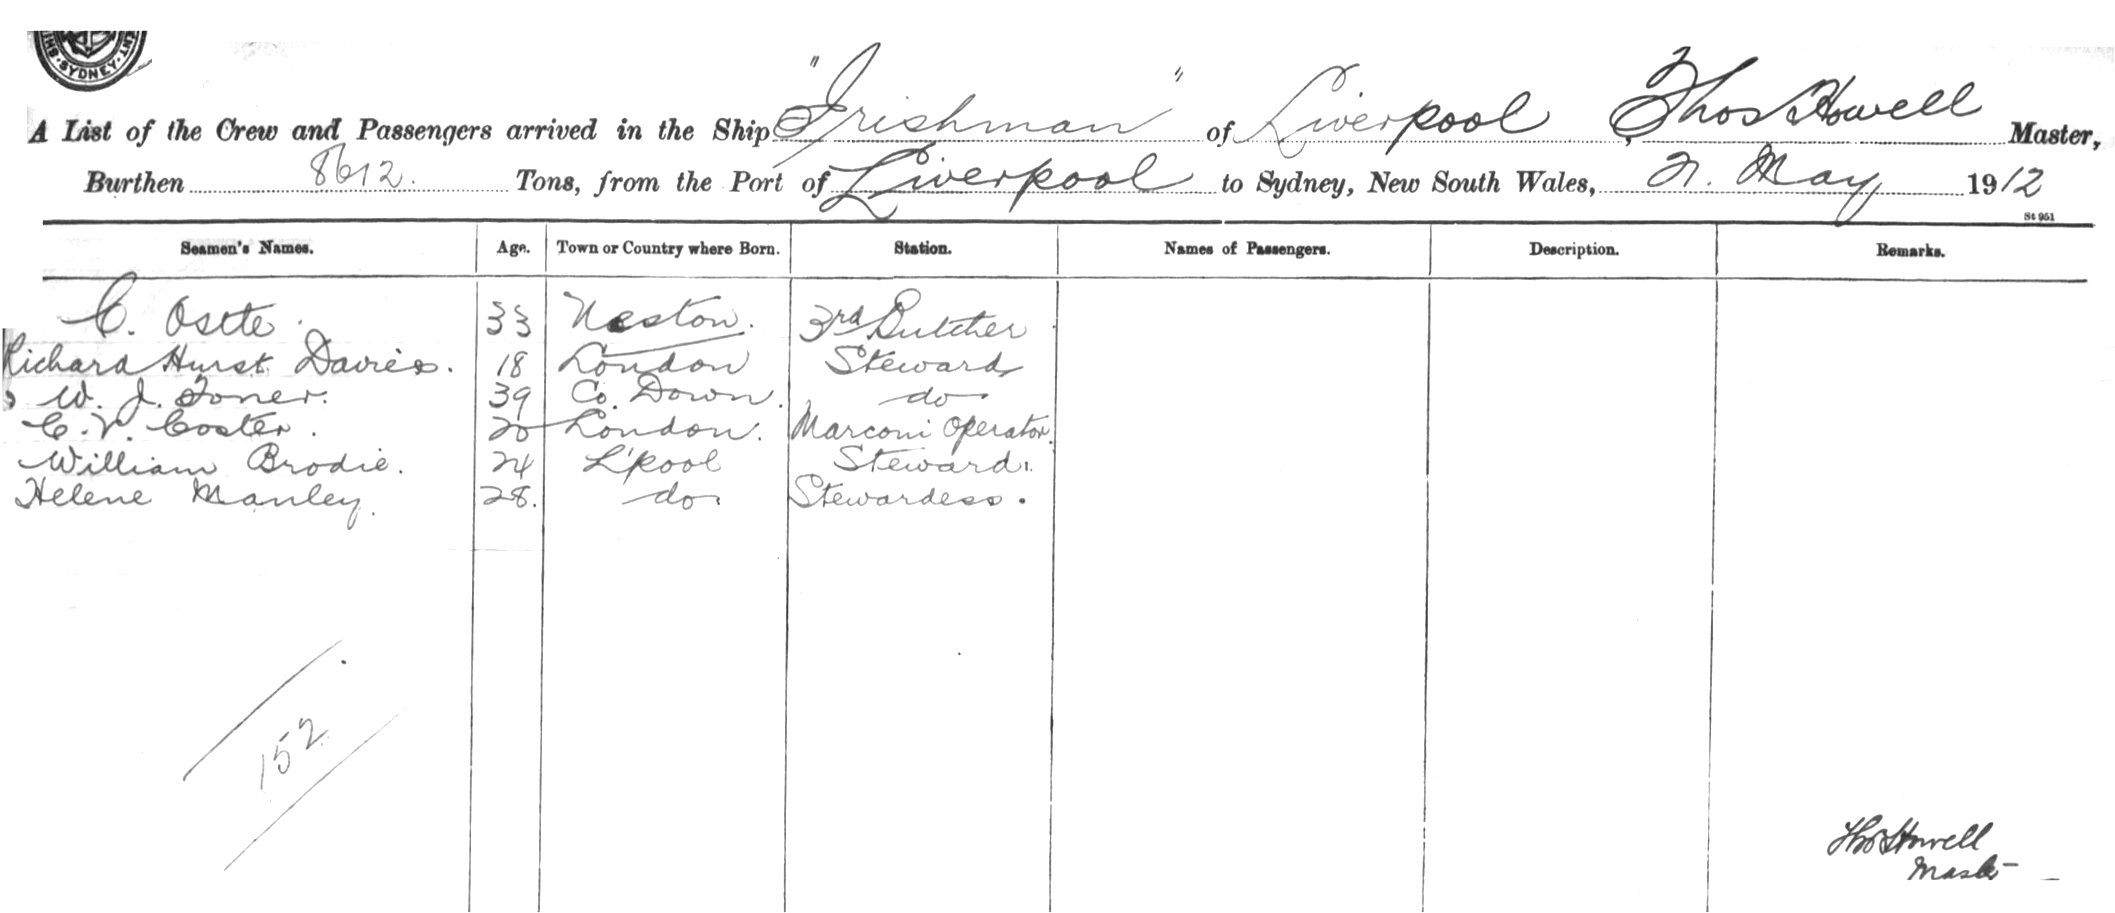 SYDNEY
A List of the Crew and Passengers arrived in the Ship "Irishman" of Liverpool, Thos Howell Master,
Burthen 8612. Tons, from the Port of Liverpool to Sydney, New South Wales, May 1912
St 951
Seamen's Names. Age. Town or Country where Born. Station. Names of Passengers. Description. Remarks.
C. Osete. 33 Neston. 3rd Butcher
Richard Hurst Davies. 18 London Steward
W. J. Toner. 39 Co. Down. do
C. V. Coster. 20 London. Marconi Operator.
William Brodie. 24 L'pool Steward.
Helene Manley. 28. do. Stewardess.
152
Thos Howell
Master